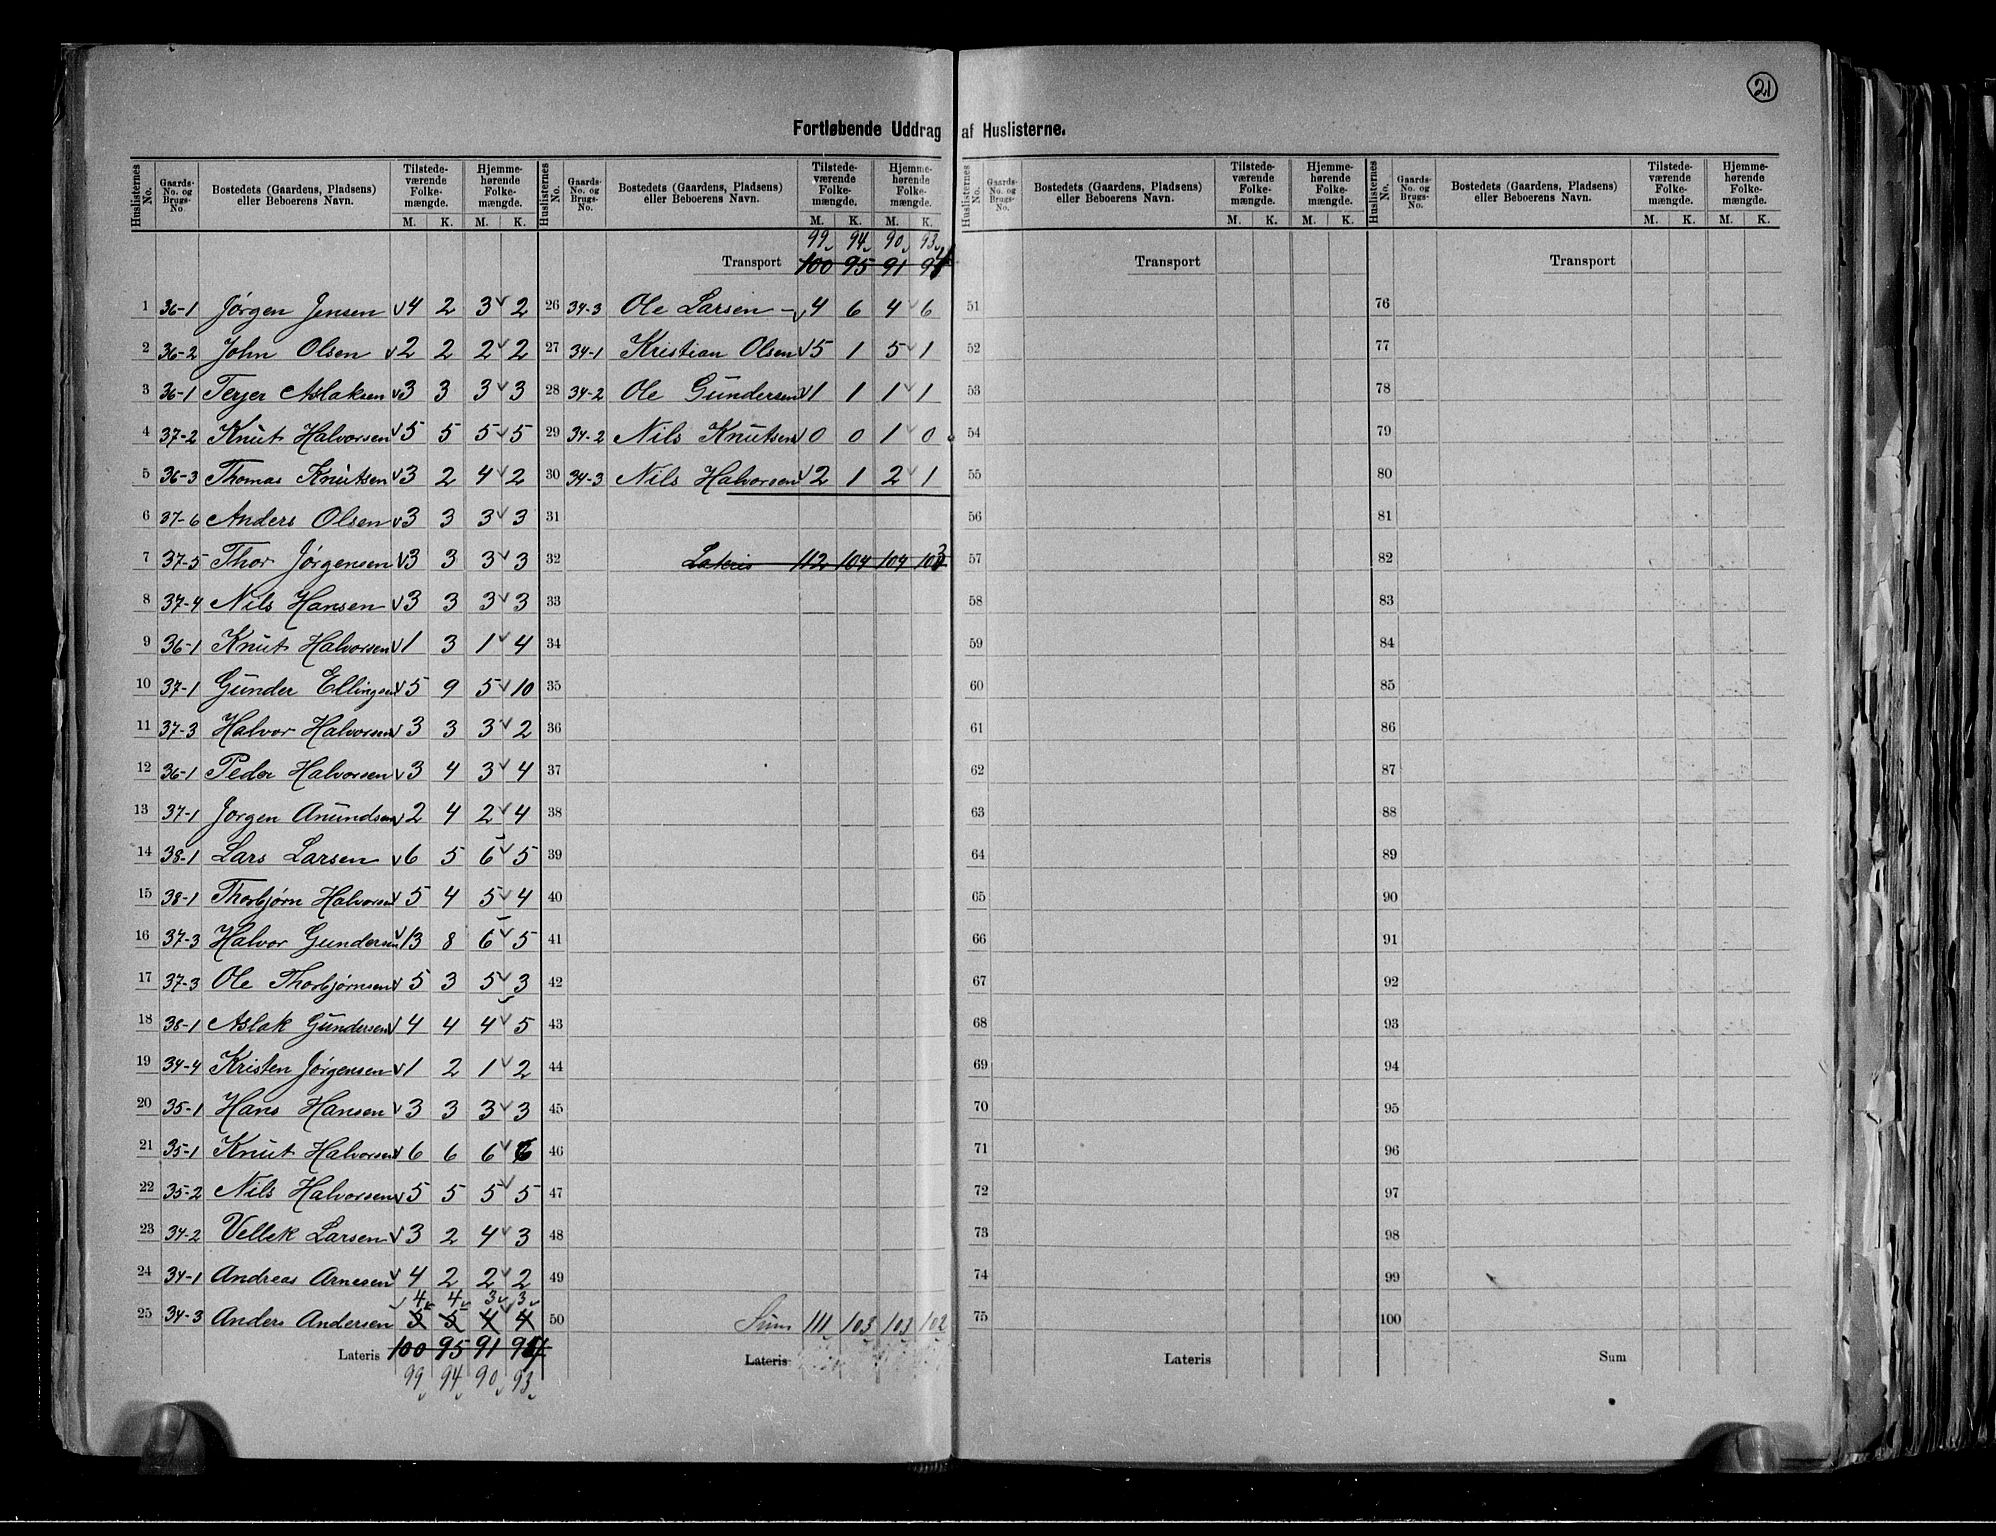 21
Fortløbende Uddrag af Huslisterne.
Huslisternes No. | Gaards- No. og Brugs- No. | Bostedets (Gaardens, Pladsens) eller Beboerens Navn. | Tilstede- værende Folke- mængde. M. K. | Hjemme- hørende Folke- mængde. M. K.
1 36-1 Jørgen Jensen 4 2 3 2
2 36-2 John Olsen 2 2 2 2
3 36-1 Terjer Aslaksen 3 3 3 3
4 37-2 Knut Halvorsen 5 5 5 5
5 36-3 Thomas Knutsen 3 2 4 2
6 37-6 Anders Olsen 3 3 3 3
7 37-5 Thor Jørgensen 3 3 3 3
8 37-4 Nils Hansen 3 3 3 3
9 36-1 Knut Halvorsen 1 3 1 4
10 37-1 Gunder Ellingsen 5 9 5 10
11 37-3 Halvor Halvorsen 3 3 3 2
12 36-1 Peder Halvorsen 3 4 3 4
13 37-1 Jørgen Anundsen 2 4 2 4
14 38-1 Lars Larsen 6 5 6 5
15 38-1 Thorbjørn Halvorsen 5 4 5 4
16 37-3 Halvor Gundersen 13 8 6 5
17 37-3 Ole Thorbjørnsen 5 3 5 3
18 38-1 Aslak Gundersen 4 4 4 5
19 34-4 Kristen Jørgensen 1 2 1 2
20 35-1 Hans Hansen 3 3 3 3
21 35-1 Knut Halvorsen 6 6 6 6
22 35-2 Nils Halvorsen 5 5 5 5
23 34-2 Vellek Larsen 3 2 4 3
24 34-1 Andreas Arnesen 4 2 2 2
4 4 3 3
25 34-3 Anders Andersen 5 5 4 4
Lateris 100 95 91 94
99 94 90 93
Huslisternes No. | Gaards- No. og Brugs- No. | Bostedets (Gaardens, Pladsens) eller Beboerens Navn. | Tilstede- værende Folke- mængde. M. K. | Hjemme- hørende Folke- mængde. M. K.
99 94 90 93
Transport 100 95 91 94
26 34-3 Ole Larsen 4 6 4 6
27 34-1 Kristian Olsen 5 1 5 1
28 34-2 Ole Gundersen 1 1 1 1
29 34-2 Nils Knutsen 0 0 1 0
30 34-3 Nils Halvorsen 2 1 2 1
31
32 Lateris 112 104 104 103
33
34
35
36
37
38
39
40
41
42
43
44
45
46
47
48
49
50 Sum 111 103 103 102
Lateris
Huslisternes No. | Gaards- No. og Brugs- No. | Bostedets (Gaardens, Pladsens) eller Beboerens Navn. | Tilstede- værende Folke- mængde. M. K. | Hjemme- hørende Folke- mængde. M. K.
Transport
51
52
53
54
55
56
57
58
59
60
61
62
63
64
65
66
67
68
69
70
71
72
73
74
75
Lateris
Huslisternes No. | Gaards- No. og Brugs- No. | Bostedets (Gaardens, Pladsens) eller Beboerens Navn. | Tilstede- værende Folke- mængde. M. K. | Hjemme- hørende Folke- mængde. M. K.
Transport
76
77
78
79
80
81
82
83
84
85
86
87
88
89
90
91
92
93
94
95
96
97
98
99
100
Sum